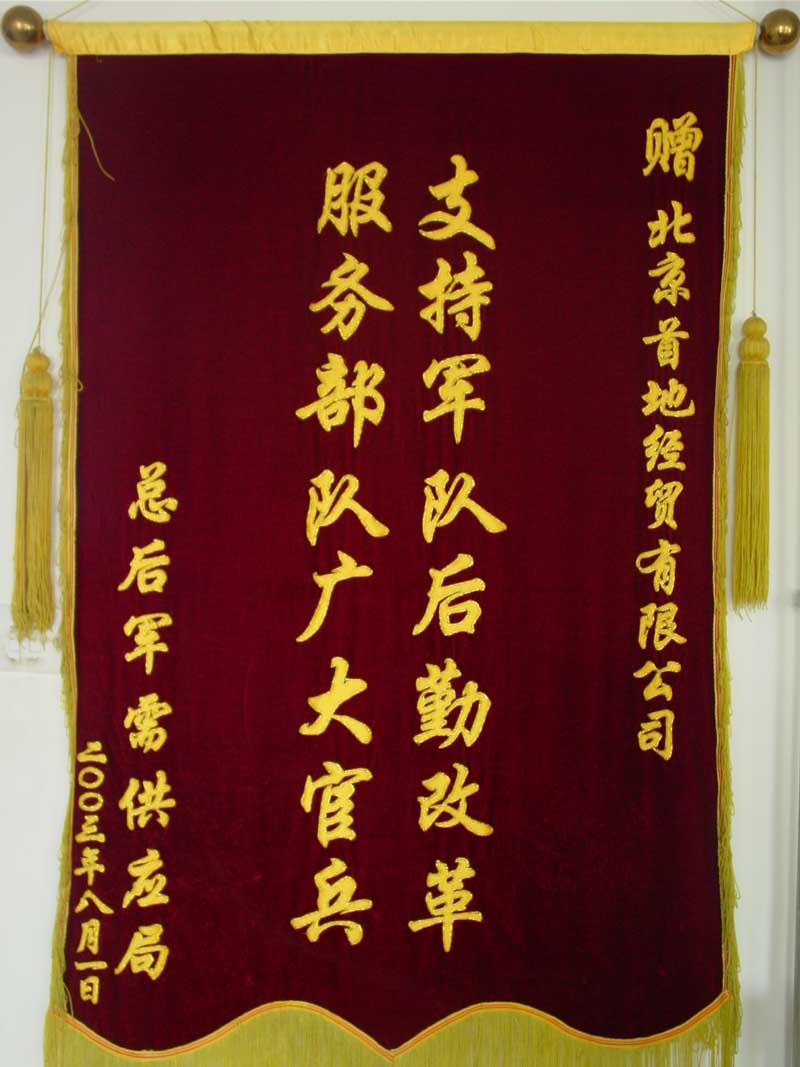 赠 北京首地经贸有限公司
支持军队后勤改革
服务部队广大官兵
总后军需供应局
二〇〇三年八月一日